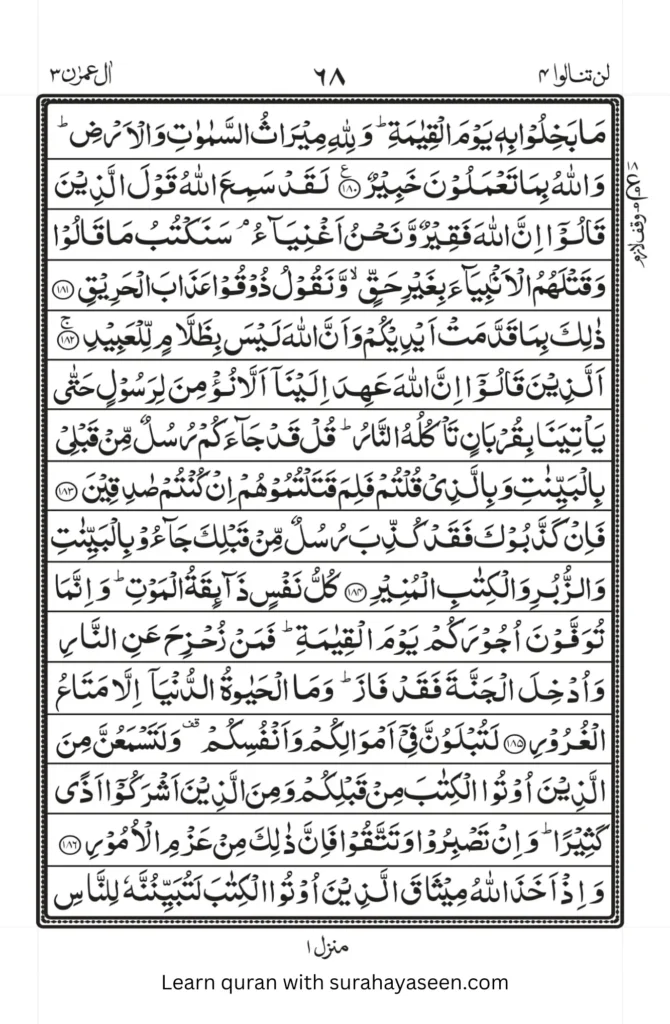 لن تنالوا ۴ ٦٨ اٰل عمرٰن ۳
مَا بَخِلُوۡا بِهٖ يَوۡمَ الۡقِيٰمَةِ ؕ وَ لِلّٰهِ مِيۡرَاثُ السَّمٰوٰتِ وَ الۡاَرۡضِ ؕ
وَاللّٰهُ بِمَا تَعۡمَلُوۡنَ خَبِيۡرٌ ﴿۱۸۰﴾ ع لَقَدۡ سَمِعَ اللّٰهُ قَوۡلَ الَّذِيۡنَ
قَالُوۡۤا اِنَّ اللّٰهَ فَقِيۡرٌ وَّ نَحۡنُ اَغۡنِيَآءُ ۘ سَنَكۡتُبُ مَا قَالُوۡا
وَقَتۡلَهُمُ الۡاَنۡۢبِيَآءَ بِغَيۡرِ حَقٍّ ۙ وَّنَقُوۡلُ ذُوۡقُوۡا عَذَابَ الۡحَرِيۡقِ ﴿۱۸۱﴾
ذٰلِكَ بِمَا قَدَّمَتۡ اَيۡدِيۡكُمۡ وَ اَنَّ اللّٰهَ لَيۡسَ بِظَلَّامٍ لِّلۡعَبِيۡدِ ﴿۱۸۲﴾ ج
اَلَّذِيۡنَ قَالُوۡۤا اِنَّ اللّٰهَ عَهِدَ اِلَيۡنَاۤ اَلَّا نُؤۡمِنَ لِرَسُوۡلٍ حَتّٰى
يَاۡتِيَنَا بِقُرۡبَانٍ تَاۡكُلُهُ النَّارُ ؕ قُلۡ قَدۡ جَآءَكُمۡ رُسُلٌ مِّنۡ قَبۡلِىۡ
بِالۡبَيِّنٰتِ وَ بِالَّذِىۡ قُلۡتُمۡ فَلِمَ قَتَلۡتُمُوۡهُمۡ اِنۡ كُنۡتُمۡ صٰدِقِيۡنَ ﴿۱۸۳﴾
فَاِنۡ كَذَّبُوۡكَ فَقَدۡ كُذِّبَ رُسُلٌ مِّنۡ قَبۡلِكَ جَآءُوۡ بِالۡبَيِّنٰتِ
وَ الزُّبُرِ وَالۡكِتٰبِ الۡمُنِيۡرِ ﴿۱۸۴﴾ كُلُّ نَفۡسٍ ذَآٮِٕقَةُ الۡمَوۡتِ ؕ وَ اِنَّمَا
تُوَفَّوۡنَ اُجُوۡرَكُمۡ يَوۡمَ الۡقِيٰمَةِ ؕ فَمَنۡ زُحۡزِحَ عَنِ النَّارِ
وَ اُدۡخِلَ الۡجَنَّةَ فَقَدۡ فَازَ ؕ وَمَا الۡحَيٰوةُ الدُّنۡيَاۤ اِلَّا مَتَاعُ
الۡغُرُوۡرِ ﴿۱۸۵﴾ لَتُبۡلَوُنَّ فِىۡۤ اَمۡوَالِكُمۡ وَاَنۡفُسِكُمۡ قف وَلَتَسۡمَعُنَّ مِنَ
الَّذِيۡنَ اُوۡتُوا الۡكِتٰبَ مِنۡ قَبۡلِكُمۡ وَمِنَ الَّذِيۡنَ اَشۡرَكُوۡۤا اَذًى
كَثِيۡرًا ؕ وَاِنۡ تَصۡبِرُوۡا وَتَتَّقُوۡا فَاِنَّ ذٰلِكَ مِنۡ عَزۡمِ الۡاُمُوۡرِ ﴿۱۸۶﴾
وَاِذۡ اَخَذَ اللّٰهُ مِيۡثَاقَ الَّذِيۡنَ اُوۡتُوا الۡكِتٰبَ لَتُبَيِّنُنَّهٗ لِلنَّاسِ
وقف لازم
منزل ۱
Learn quran with surahayaseen.com